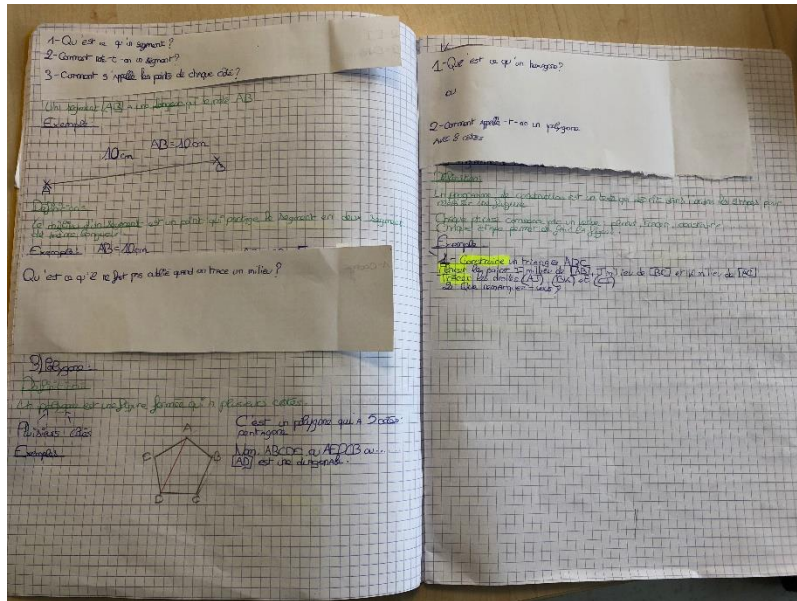 1- Qu'est ce qu'un segment?
2- Comment on un segment?
3- Comment s'appelle les points de chaque côté?
Un segment [AB] a une longueur AB
Exemple
10cm AB=10cm
A B
Définitions
Le milieu d'un segment est un point qui partage le segment en deux segment
de même longueur.
Exemple: AB=10cm
Qu'est ce qu'il ne faut pas oublié quand on trace un milieu?
Polygone
Définition
Un polygone est une figure fermée qui a plusieurs côtés.
Plusieurs côtés
Exemples
C'est un polygone qui a 5 côtés.
pentagone
Nom: ABCDE ou AEDCB ou...
[AD] est une diagonale.
A
E B
D C
1- Que est ce qu'un hexagone?
ou
2- Comment appelle-t-on un polygone
avec 8 côtés
Définition
Un programme de construction est un texte qui décrit dans l'ordre les étapes pour
réaliser une figure.
Chaque phrase commence par un verbe
Chaque étape permet de la figure.
Exemple
1- Construire un triangle ABC.
Placer les points I milieu de [AB], J milieu de [BC] et K milieu de [AC]
Tracer les droites (AJ), (BK) et (CI)
2- Que remarquez-vous?